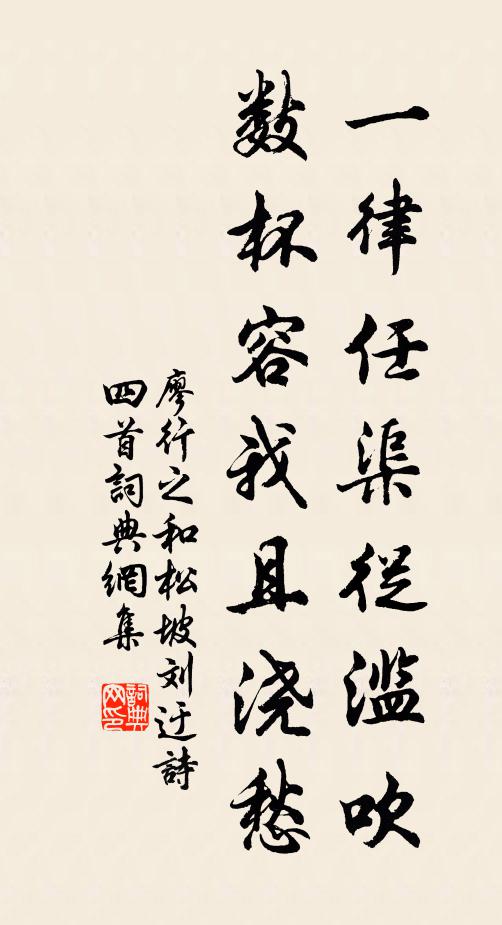 一律任渠従滥吹
数杯容我且浇愁
廖行之和松坡刘迓詩
四首詞典網集
詞典网印